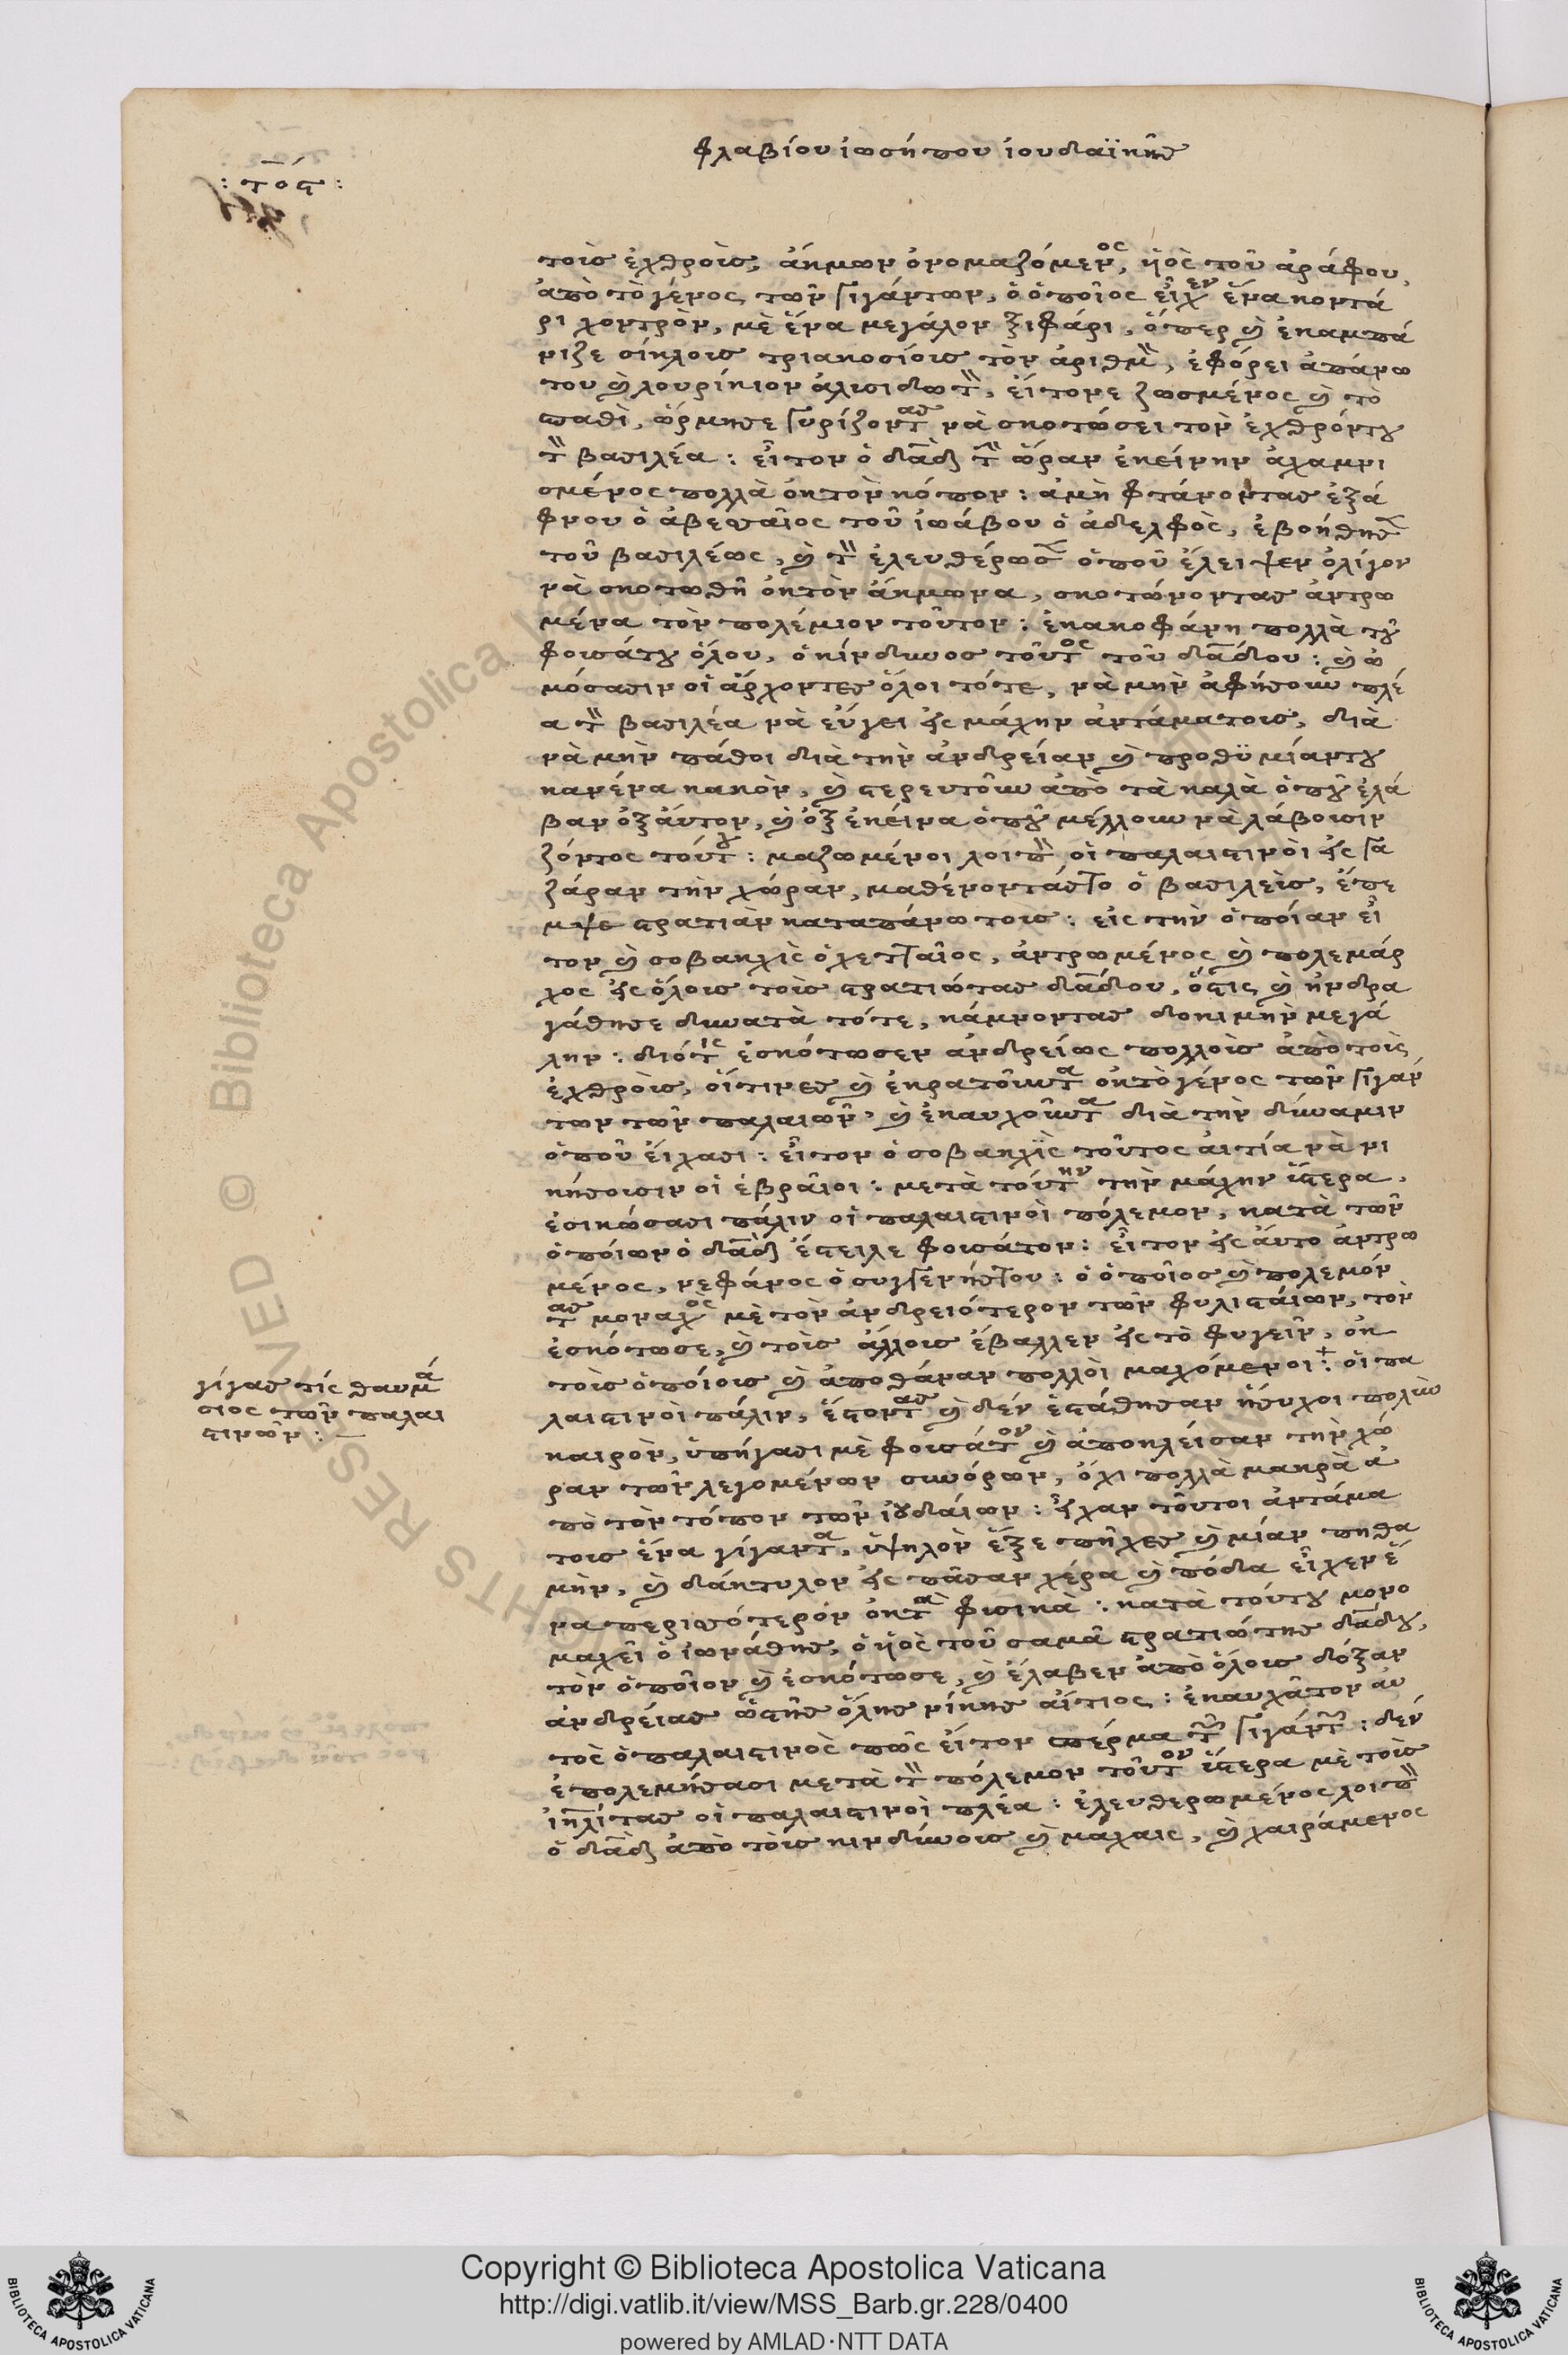 φλαβίου ἰωσήπου ἰουδαϊκῆς
: τος :
τοὶς ἐχθροὶς, ἄκμων ὀνομαζόμενος, ἡὸς τοῦ ἀράφου,
ἀπὸ τὸ γένος τῶν γιγάντων, ὁ ὁποῖος εἶχεν ἕνα κοντά
ρι χοντρὸν, μὲ ἕνα μεγάλον ξιφάρι, ὅπερ καὶ ἐκαμπά
νιζε σίκλοις τριακοσίοις τὸν ἀριθμὸν, ἐφόρει ἀπάνω
του καὶ λουρίκιον ἁλισιδωτὸν, εἴτονε ζωσμένος καὶ τὸ
σπαθὶ, ὥρμησε γυρίζοντας νὰ σκοτώσει τὸν ἐχθρόντου
τὸν βασιλέα : εἶτον ὁ δαδ τὴν ὥραν ἐκείνην ἀχαμνι
σμένος πολλὰ ἐκ τὸν κόπον : ἀμὴ φτάνοντας ἐξά
φνου ὁ ἀβεσαῖος τοῦ ἰωάβου ὁ ἀδελφὸς, ἐβοήθησε
τοῦ βασιλέως, καὶ τὸν ἐλευθέρωσε ὁποῦ ἔλειψεν ὀλίγον
νὰ σκοτωθῆ ἐκ τὸν ἄκμωνα, σκοτώνοντας ἀντρω
μένα τὸν πολέμιον τοῦτον : ἐκακοφάνη πολλὰ τοῦ
φουσάτου ὅλου, ὁ κίνδυνος τοῦτος τοῦ δαδου : καὶ ὠ
μόσασιν οἱ ἄρχοντες ὅλοι τότε, νὰ μὴν ἀφήσουν πλέ
α τὸν βασιλέα νὰ εὔγει εἰς μάχην ἀντάματοις, διὰ
νὰ μὴν πάθοι διὰ τὴν ἀνδρείαν καὶ προθϋμίαντου
κανένα κακὸν, καὶ στερευτοῦν ἀπὸ τὰ καλὰ ὁποῦ ἐλά
βαν ἐξ αὐτον, καὶ ἐξ ἐκείνα ὁποῦ μέλλουν νὰ λάβουσιν
ζόντος τούτου : μαζωμένοι λοιπὸν οἱ παλαιστινοὶ εἰς γα
ζάραν τὴν χώραν, μαθένοντάςτο ὁ βασιλεὶς, ἔπε
μψε στρατιὰν καταπάνω τοις : εἰς τὴν ὁποίαν εἶ
τον καὶ σοβακχὶς ὁ χετταῖος, ἀντρωμένος καὶ πολεμάρ
χος εἰς ὅλοις τοὶς στρατιώτας δαδου, ὅστις καὶ ἠνδρα
γάθησε δυνατὰ τότε, κάμνοντας δοκιμὴν μεγά
λην : διότις ἐσκότωσεν ἀνδρείως πολλοὶς ἀπὸ τοὶς
ἐχθροὶς, οἵτινες καὶ ἐκρατοῦντα ἐκ τὸ γένος τῶν γιγάν
των τῶν παλαιῶν, καὶ ἐκαυχοῦντα διὰ τὴν δύναμιν
ὁποῦ εἴχασι : εἶτον ὁ σοβακχὶς τοῦτος αἰτία νὰ νι
κήσουσιν οἱ ἑβραῖοι : μετὰ τούτην τὴν μάχην ὕστερα,
ἐσικώσασι πάλιν οἱ παλαιστινοὶ πόλεμον, κατὰ τῶν
ὁποίων ὁ δαδ ἔστειλε φουσάτον : εἶτον εἰς αὐτο ἀντρω
μένος, νεφάνος ὁ συγγενήςτου : ὁ ὁποῖος καὶ πολεμόν
τας μοναχὸς μὲ τὸν ἀνδρειότερον τῶν φυλιστάιων, τὸν
ἐσκότωσε, καὶ τοὶς ἄλλοις ἔβαλλεν εἰς τὸ φυγεῖν, ἐκ
τοὶς ὁποίοις καὶ ἀποθάναν πολλοὶ μαχόμενοι : οἱ πα
λαιστινοὶ πάλιν, ἔστοντας καὶ δὲν ἐστάθησαν ἥσυχοι πολὺν
καιρὸν, ὑπήγασι μὲ φουσάτον καὶ ἀποκλείσαν τὴν χώ
ραν τῶν λεγομένων συνόρων, ὄχι πολλὰ μακρὰ ἀ
πὸ τὸν τόπον τῶν ἰουδαίων : εἶχαν τοῦτοι ἀντάμα
τοις ἕνα γίγαντα, ὑψηλὸν ἕξε πῆχες καὶ μίαν πηθα
μὴν, καὶ δάκτυλον εἰς πᾶσαν χέρα καὶ πόδα εἶχεν ἕ
να περισότερον ἐκ τὰ φισικὰ : κατὰ τούτου μονο
μαχεῖ ὁ ἰωνάθης, ὁ ἡὸς τοῦ σαμᾶ στρατιώτης δαδου,
τὸν ὁποῖον καὶ ἐσκότωσε, καὶ ἔλαβεν ἀπὸ ὅλοις δόξαν
ἀνδρείας ὡς τῆς ὅλης νίκης αἴτιος : ἐκαυχᾶτον αὐ
τὸς ὁ παλαιστινὸς πῶς εἴτον σπέρμα τῶν γιγάντων : δὲν
ἐπολεμήσασι μετὰ τὸν πόλεμον τοῦτον ὕστερα μὲ τοὶς
ἰηλίτας οἱ παλαιστινοὶ πλέα : ἐλευθερωμένος λοιπὸν
ὁ δαδ ἀπὸ τὸις κινδύνοις καὶ μάχαις, καὶ χαιράμενος
γίγας τίς θαυμά
σιος τῶν παλαι
στινῶν : —
Copyright © Biblioteca Apostolica Vaticana
http://digi.vatlib.it/view/MSS_Barb.gr.228/0400
powered by AMLAD·NTT DATA